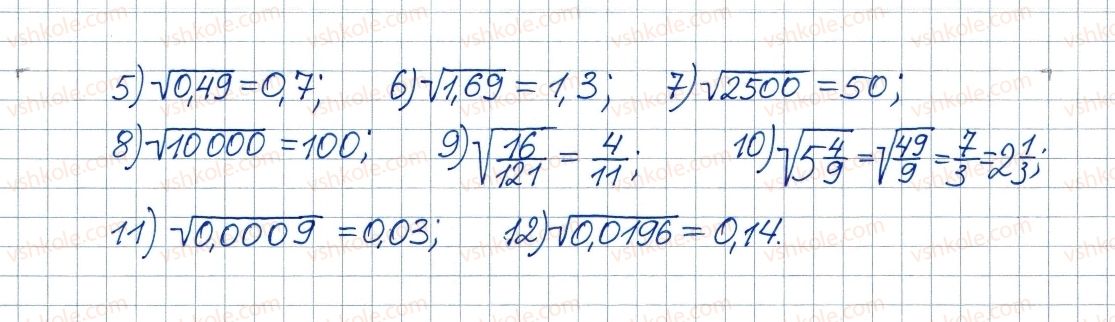 5) √0,49 = 0,7; 6) √1,69 = 1,3; 7) √2500 = 50;
8) √10 000 = 100; 9) √16/121 = 4/11; 10) √5 4/9 = √49/9 = 7/3 = 2 1/3;
11) √0,0009 = 0,03; 12) √0,0196 = 0,14.